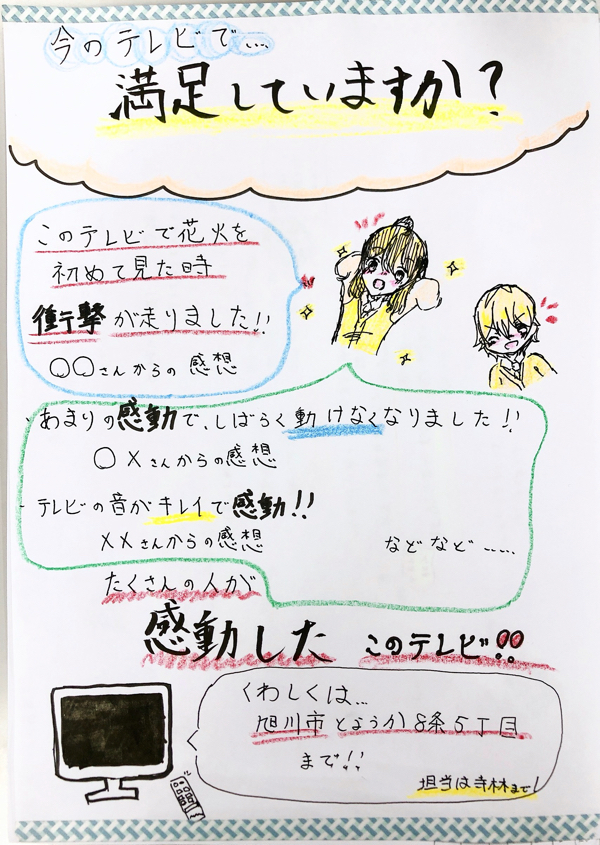 今のテレビで…
満足していますか?
このテレビで花火を
初めて見た時
衝撃が走りました!!
○○さんからの感想
・あまりの感動で、しばらく動けなくなりました!!
○×さんからの感想
・テレビの音がキレイで感動!!
××さんからの感想
などなど……
たくさんの人が
感動した このテレビ!!
くわしくは…
旭川市とようか8条5丁目
まで!!
担当は寺林まで!